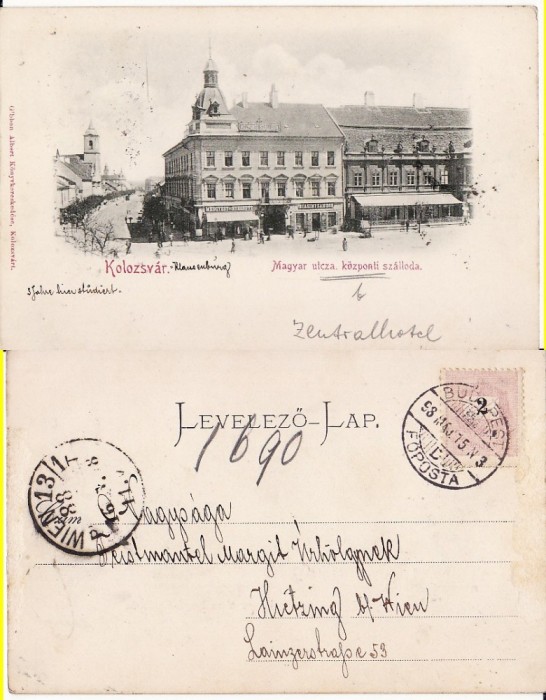 Gibbon Albert Könyvkereskedése, Kolozsvárt.
Kolozsvár. - Klausenburg
Magyar utcza, központi szálloda.
3 Jahre hier studiert.
Zentralhotel
LEVELEZŐ-LAP.
1690
BUDAPEST
98 15
FŐPOSTA
WIEN 13/1
Nagysága
Margit Úrhölgynek
Hietzing b/ Wien
Lainzerstraße 53